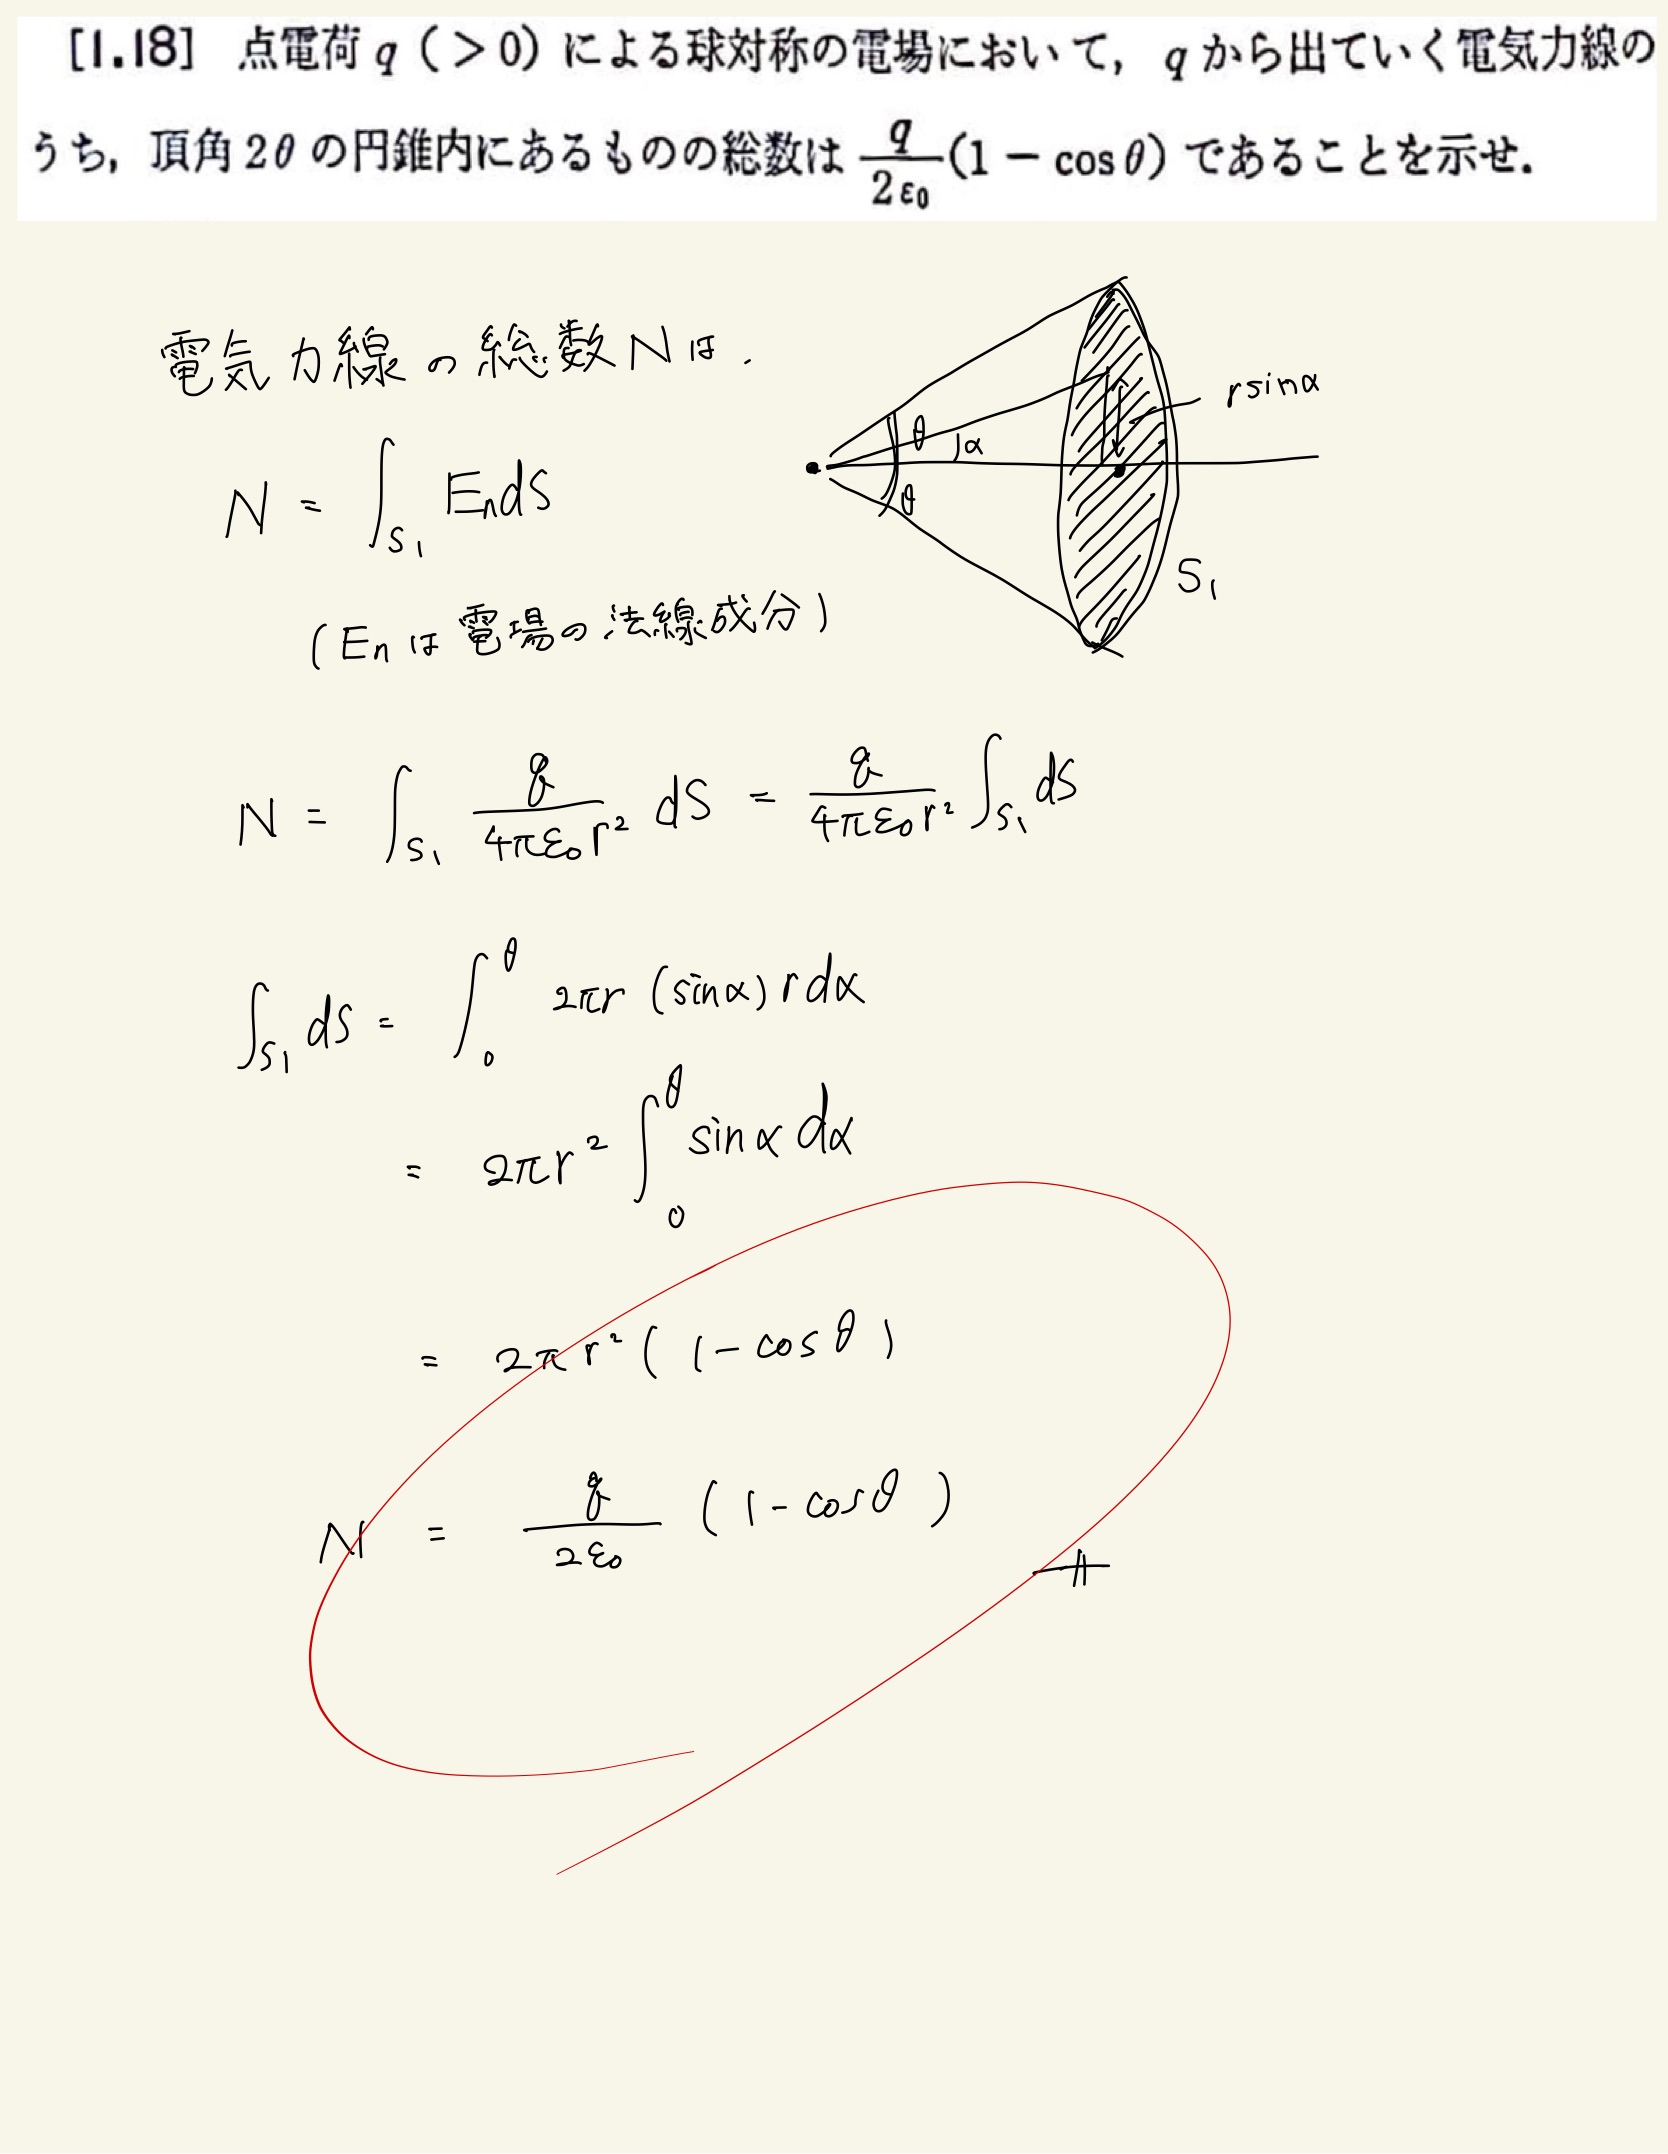 [1.18] 点電荷 q (>0) による球対称の電場において, q から出ていく電気力線の
うち, 頂角 2θ の円錐内にあるものの総数は q/2ε₀ (1 − cos θ) であることを示せ.
電気力線の総数Nは.
θ
α
θ
rsinα
S₁
N = ∫_S₁ EndS
(Enは電場の法線成分)
N = ∫_S₁ q/4πε₀r² dS = q/4πε₀r² ∫_S₁ dS
∫_S₁ dS = ∫₀^θ 2πr (sinα) r dα
= 2πr² ∫₀^θ sinα dα
= 2πr² (1 - cosθ)
N = q/2ε₀ (1 - cosθ)